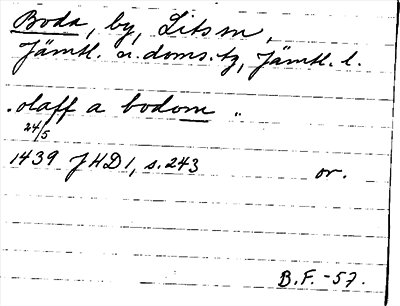 Boda, by, Lits sn,
Jämtl. n. doms.tg, Jämtl. l.
.olaff a bodom ..
24/5
1439 JHD 1, s. 243 or.
B.F. -57.